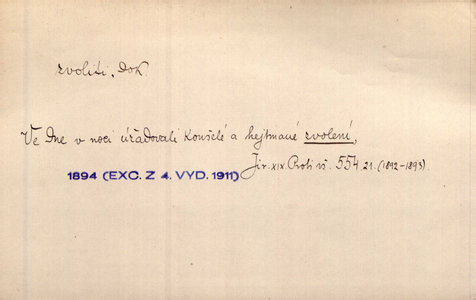 zvoliti, dok.
Ve dne v noci úřadovali konšelé a hejtmané zvolení,
Jir. XIX. Proti vš. 554, 21. (1892-1893).
1894 (EXC. Z 4. VYD. 1911)